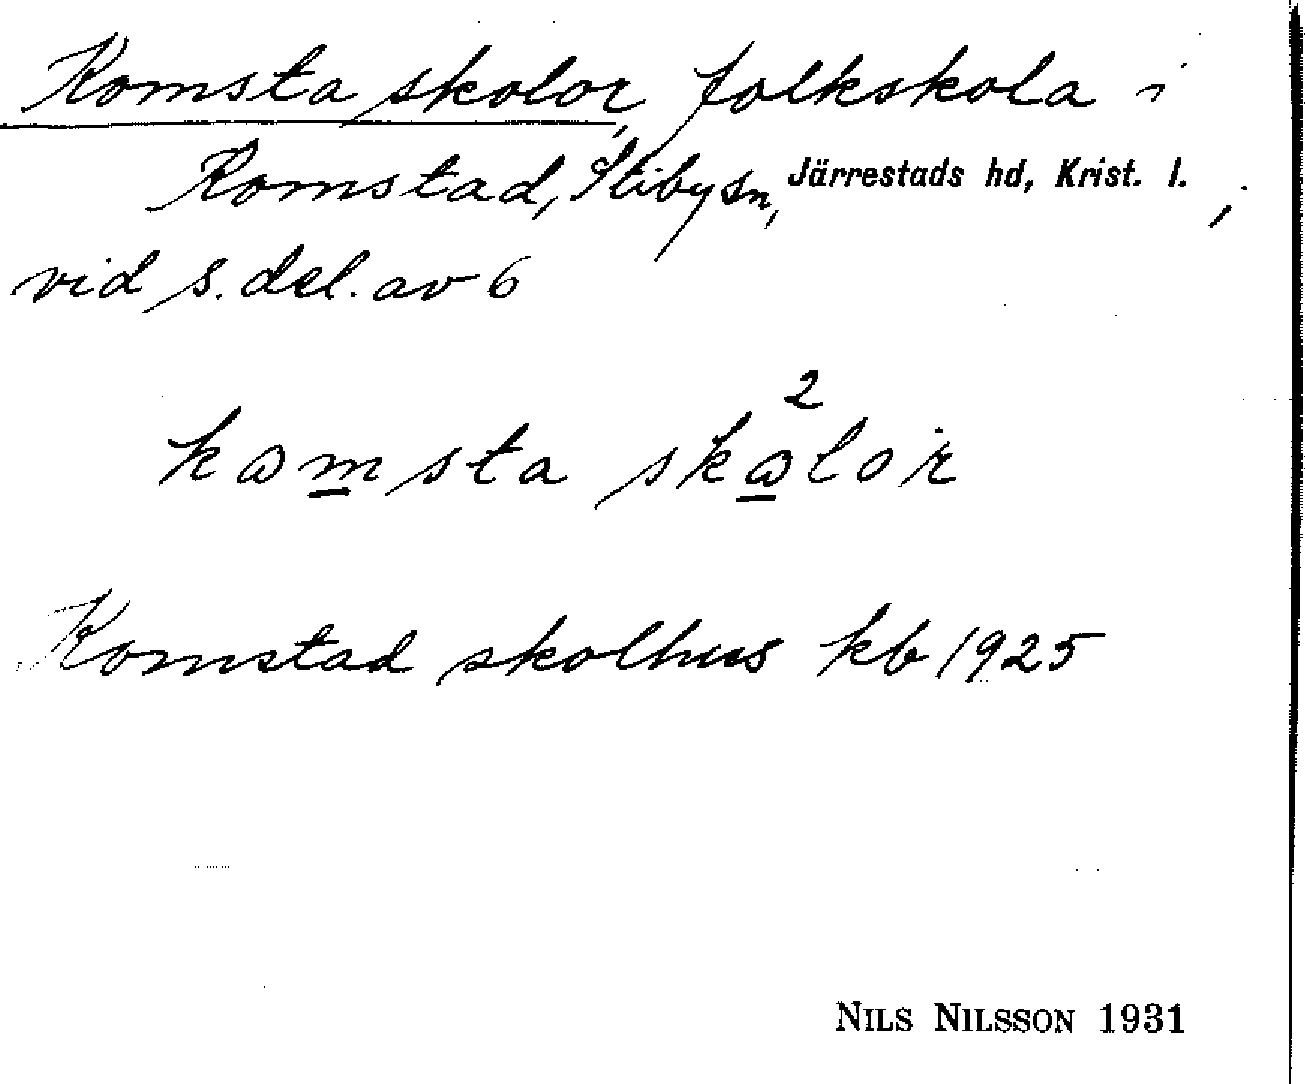 Komsta skolor, folkskola i
Komstad, Stiby sn, Järrestads hd, Krist. l. ,
vid s. del. av 6
2
kamsta skalor
Komstad skolhus kb 1925
NILS NILSSON 1931